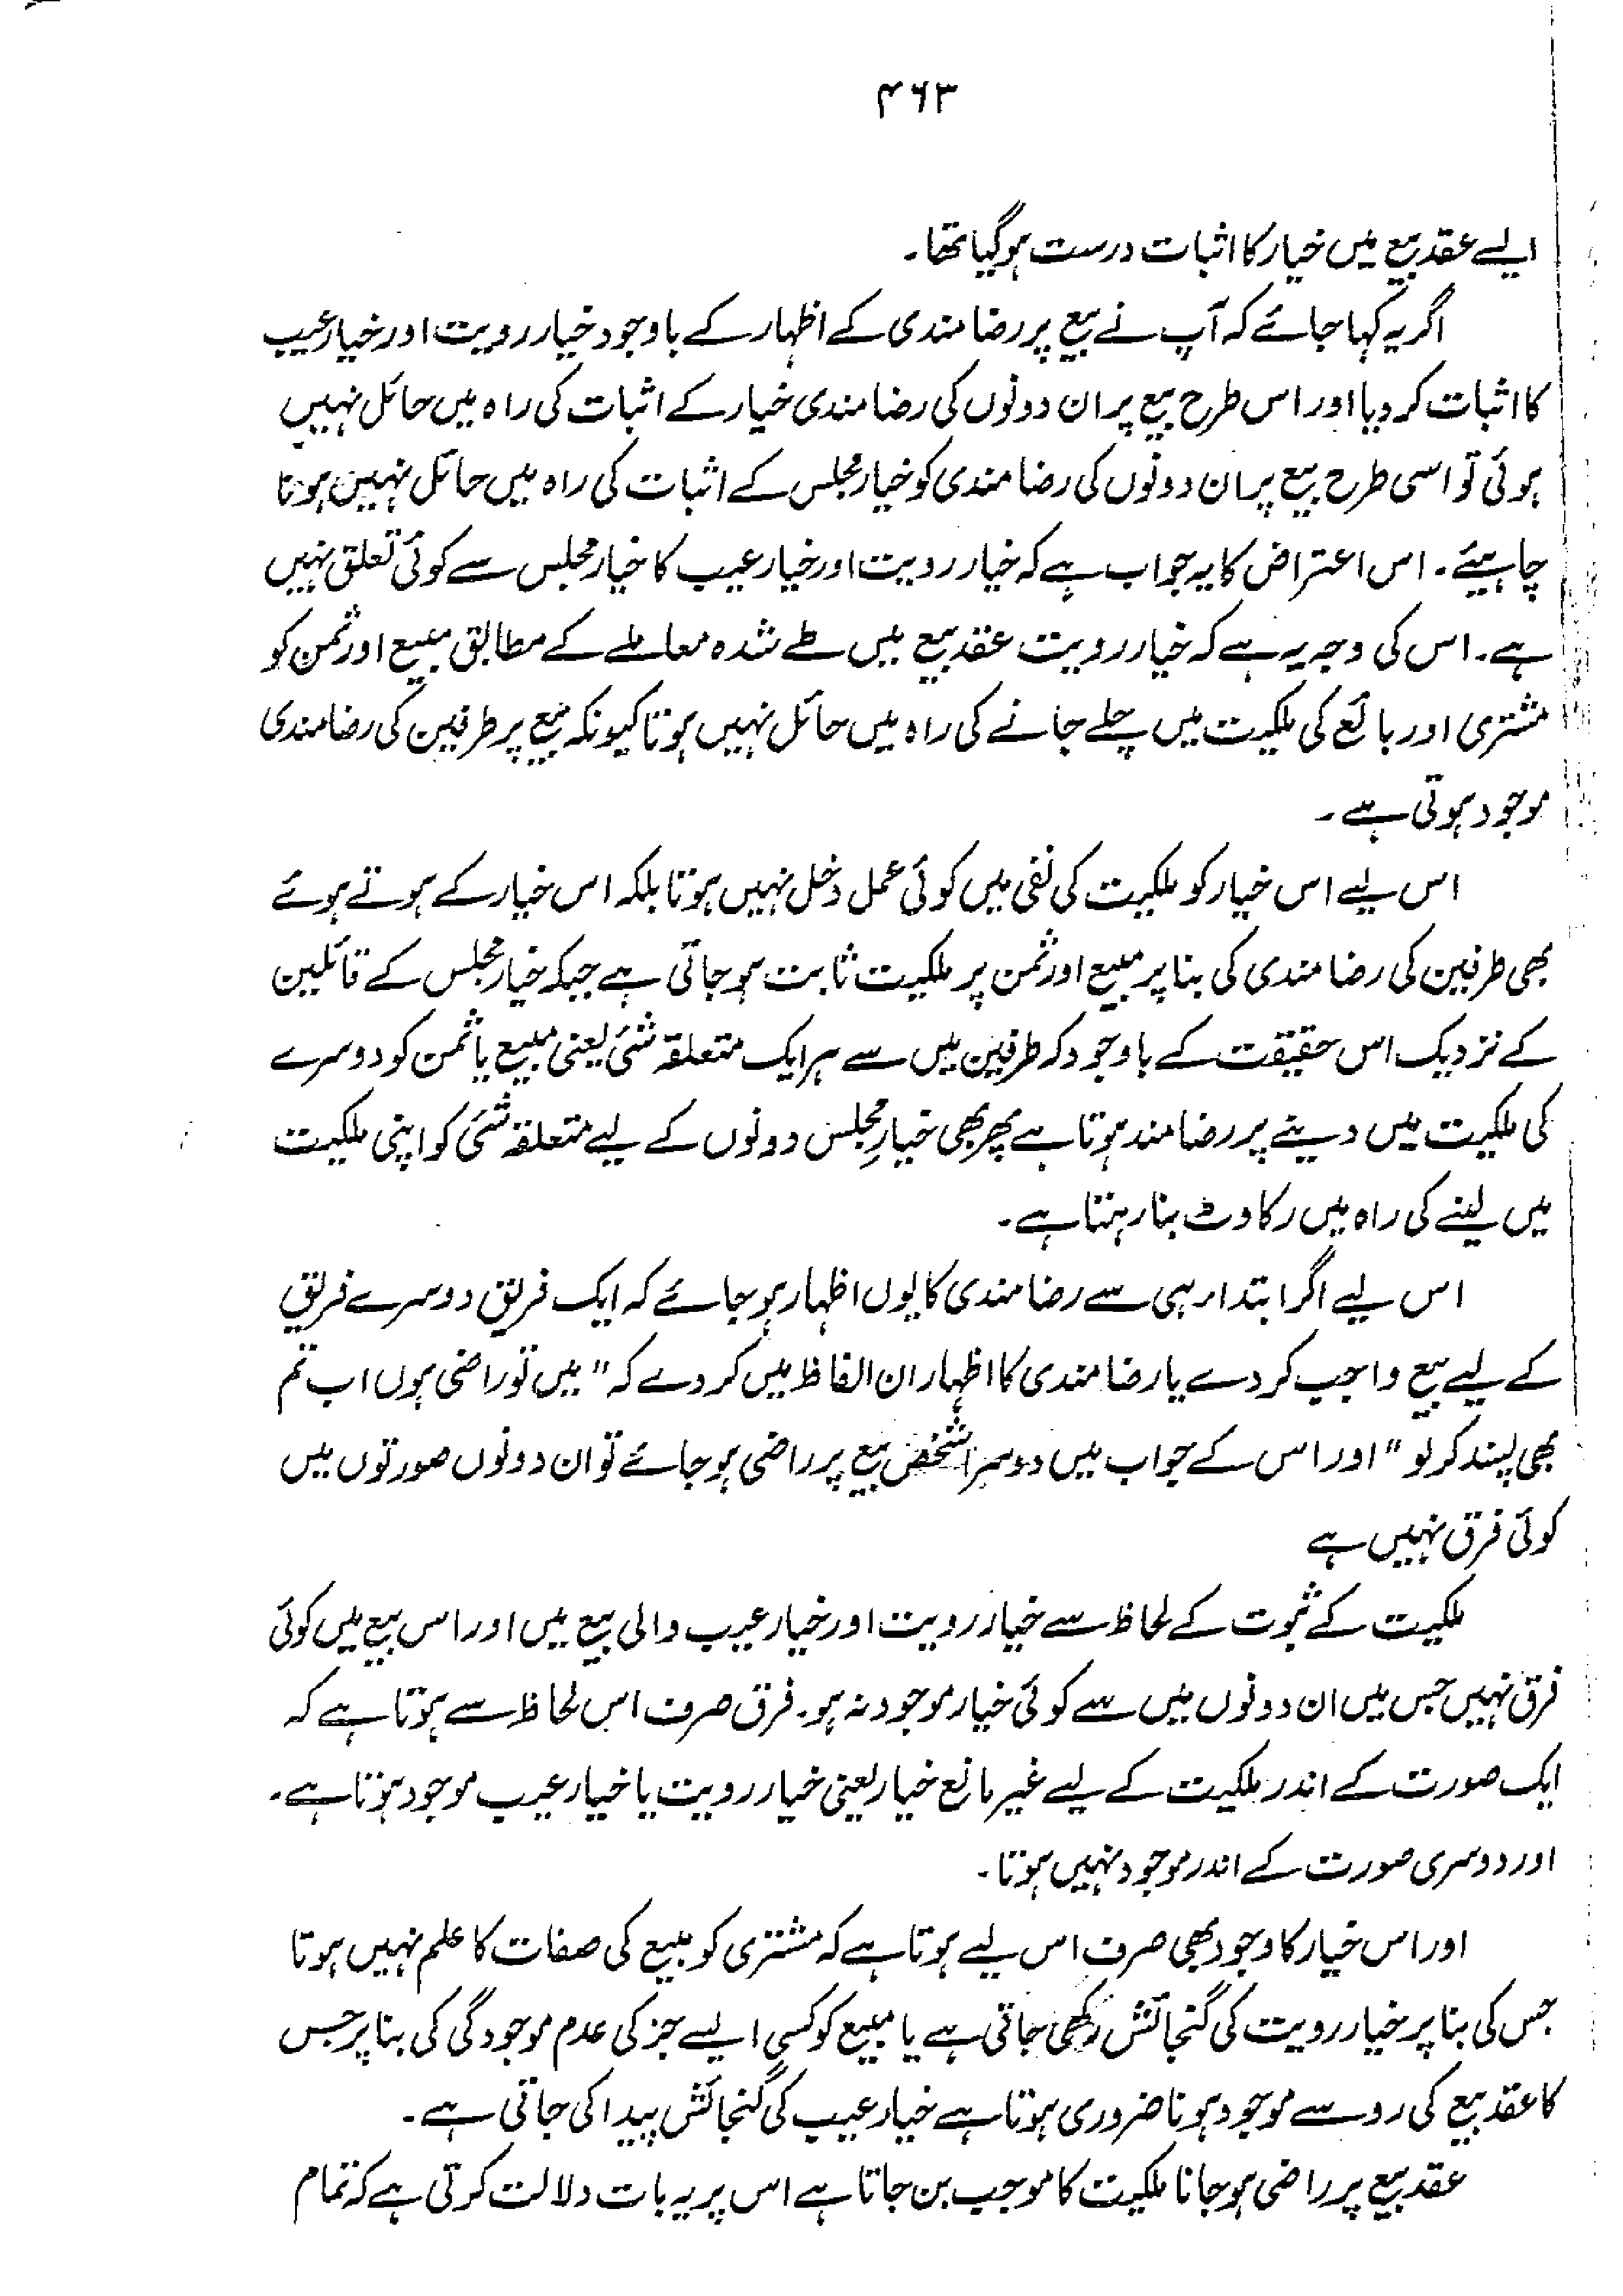 ۴۶۳
ایسے عقد بیع میں خیار کا اثبات درست ہوگیا تھا۔
اگر یہ کہا جائے کہ آپ نے بیع پر رضامندی کے اظہار کے باوجود خیار رویت اور خیار عیب
کا اثبات کر دیا اور اس طرح بیع پر ان دونوں کی رضامندی خیار کے اثبات کی راہ میں حائل نہیں
ہوئی تو اسی طرح بیع پر ان دونوں کی رضامندی کو خیار مجلس کے اثبات کی راہ میں حائل نہیں ہونا
چاہیئے۔ اس اعتراض کا یہ جواب ہے کہ خیار رویت اور خیار عیب کا خیار مجلس سے کوئی تعلق نہیں
ہے۔ اس کی وجہ یہ ہے کہ خیار رویت عقد بیع میں طے شدہ معاملے کے مطابق مبیع اور ثمن کو
مشتری اور بائع کی ملکیت میں چلے جانے کی راہ میں حائل نہیں ہوتا کیونکہ بیع پر طرفین کی رضامندی
موجود ہوتی ہے۔
اس لیے اس خیار کو ملکیت کی نفی میں کوئی عمل دخل نہیں ہوتا بلکہ اس خیار کے ہوتے ہوئے
بھی طرفین کی رضامندی کی بنا پر مبیع اور ثمن پر ملکیت ثابت ہو جاتی ہے جبکہ خیار مجلس کے قائلین
کے نزدیک اس حقیقت کے باوجود کہ طرفین میں سے ہر ایک متعلقہ شئی یعنی مبیع یا ثمن کو دوسرے
کی ملکیت میں دینے پر رضامند ہوتا ہے پھر بھی خیارِ مجلس دونوں کے لیے متعلقہ شئی کو اپنی ملکیت
میں لینے کی راہ میں رکاوٹ بنا رہتا ہے۔
اس لیے اگر ابتداء ہی سے رضامندی کا یوں اظہار ہو جائے کہ ایک فریق دوسرے فریق
کے لیے بیع واجب کر دے یا رضامندی کا اظہار ان الفاظ میں کر دے کہ "میں تو راضی ہوں اب تم
بھی پسند کر لو" اور اس کے جواب میں دوسرا شخص بیع پر راضی ہو جائے تو ان دونوں صورتوں میں
کوئی فرق نہیں ہے
ملکیت کے ثبوت کے لحاظ سے خیار رویت اور خیار عیب والی بیع میں اور اس بیع میں کوئی
فرق نہیں جس میں ان دونوں میں سے کوئی خیار موجود نہ ہو۔ فرق صرف اس لحاظ سے ہوتا ہے کہ
ایک صورت کے اندر ملکیت کے لیے غیر مانع خیار یعنی خیار رویت یا خیار عیب موجود ہوتا ہے۔
اور دوسری صورت کے اندر موجود نہیں ہوتا۔
اور اس خیار کا وجود بھی صرف اس لیے ہوتا ہے کہ مشتری کو مبیع کی صفات کا علم نہیں ہوتا
جس کی بنا پر خیار رویت کی گنجائش رکھی جاتی ہے یا مبیع کو کسی ایسے جز کی عدم موجودگی کی بنا پر جس
کا عقد بیع کی رو سے موجود ہونا ضروری ہوتا ہے خیار عیب کی گنجائش پیدا کی جاتی ہے۔
عقد بیع پر راضی ہو جانا ملکیت کا موجب بن جاتا ہے اس پر یہ بات دلالت کرتی ہے کہ تمام